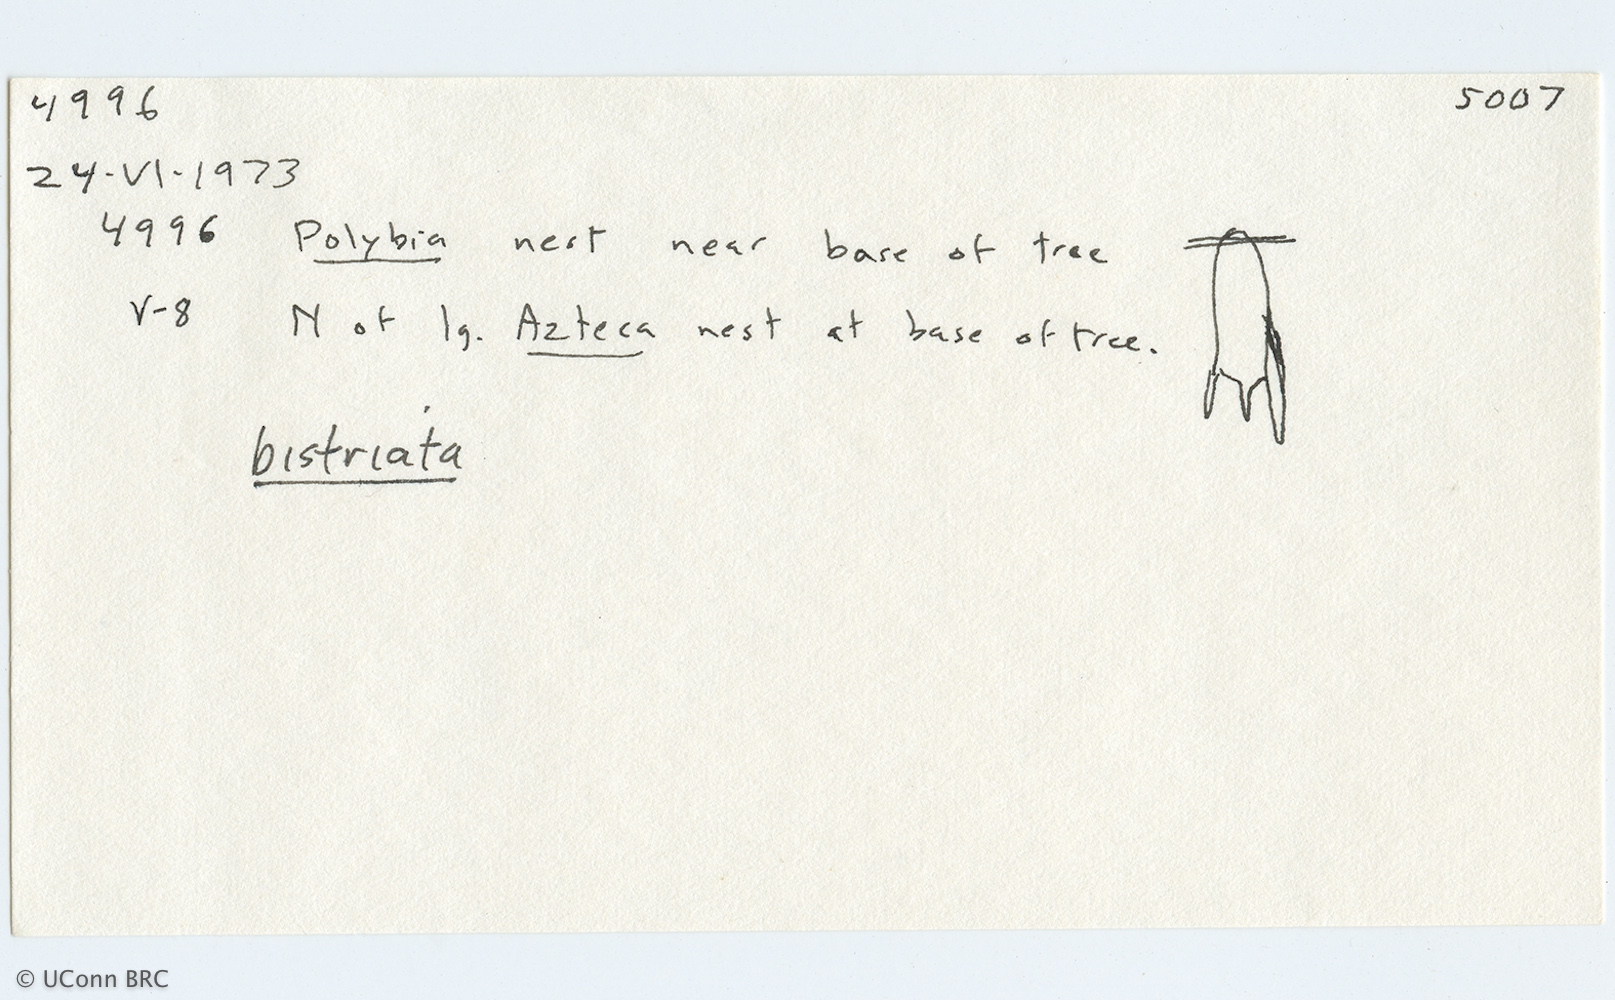 4996
5007
24-VI-1973
4996 Polybia nest near base of tree
V-8 N of lg. Azteca nest at base of tree.
bistriata
© UConn BRC